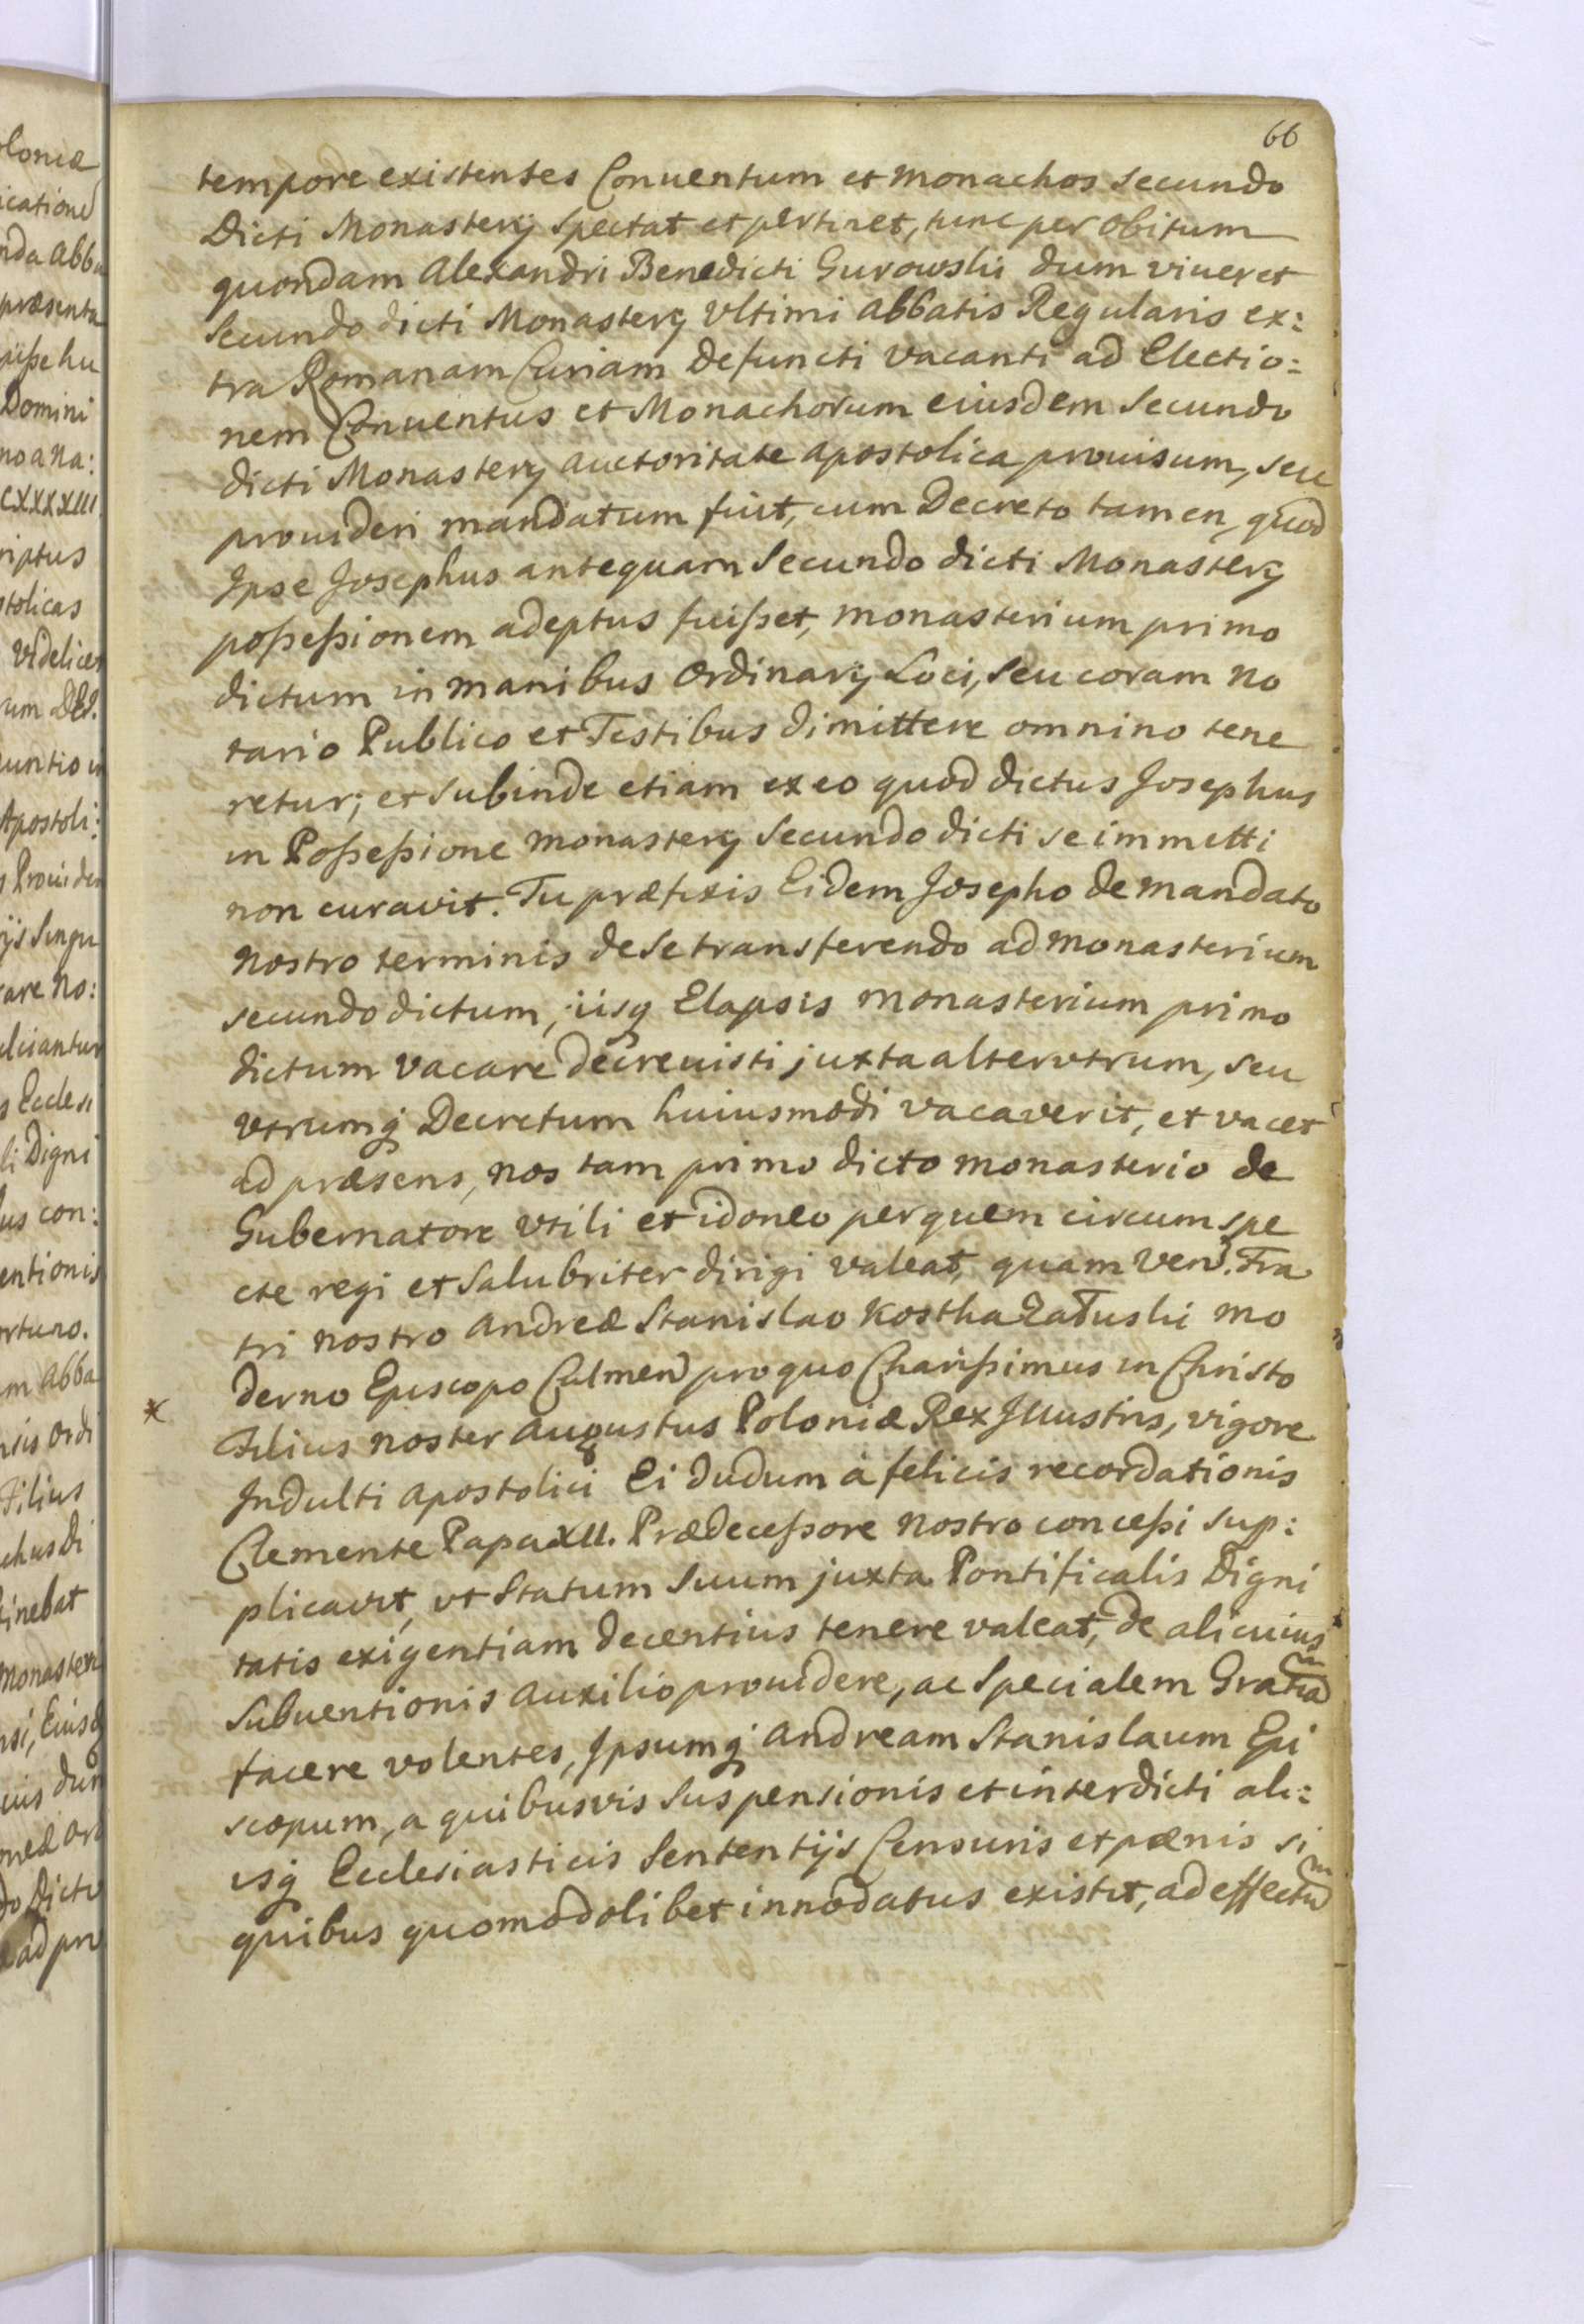 66
tempore existentes Conuentum et monachos secundo
Dicti Monasterij spectat et pertinet, tunc per obitum
quondam Alexandri Benedicti Gurowski dum viueret
Secundo dicti Monasterij vltimi Abbatis Regularis ex:
tra Romanam Curiam defuncti vacanti ad Electio:
nem Conuentus et Monachorum eiusdem secundo
dicti Monasterij auctoritate apostolica prouisum, seu
prouideri mandatum fuit, cum Decreto tamen, quod
Ipse Josephus antequam Secundo dicti Monasterij
poßeßionem adeptus fuißet, monasterium primo
dictum in manibus Ordinarij Loci, seu coram No
tario Publico et Testibus dimittere omnino tene
retur; et subinde etiam ex eo quod dictus Josephus
in Poßeßione monasterij secundo dicti se immitti
non curavit. Tu præfixis Eidem Josepho de mandato
nostro terminis de se transferendo ad monasterium
secundo dictum, iisq Elapsis monasterium primo
dictum vacare decreuisti juxta alterutrum, seu
vtrumq Decretum huiusmodi vacaverit, et vacet
ad præsens, nos tam primo dicto monasterio de
Gubernatore vtili et idoneo per quem circumspe
cte regi et salubriter dirigi valeat, quam Ven. Fra
tri nostro Andreæ Stanislao Kostha Załuski mo
derno Episcopo Culmen pro quo Charißimus in Christo
* Filius noster Augustus Poloniæ Rex Jllustris, vigore
Indulti apostolici Ei dudum à felicis recordationis
Clemente Papa XII. Prædeceßore nostro conceßi sup:
plicavit, vt Statum suum juxta Pontificalis Digni
tatis exigentiam decentius tenere valeat, de alicuius
subuentionis auxilio prouidere, ac specialem Gratia
facere volentes, Ipsumq Andream Stanislaum Epi
scopum, a quibusvis suspensionis et interdicti ali:
isq Ecclesiasticis Sententijs Censuris et pænis si
quibus quomodolibet innodatus existit, ad effectu